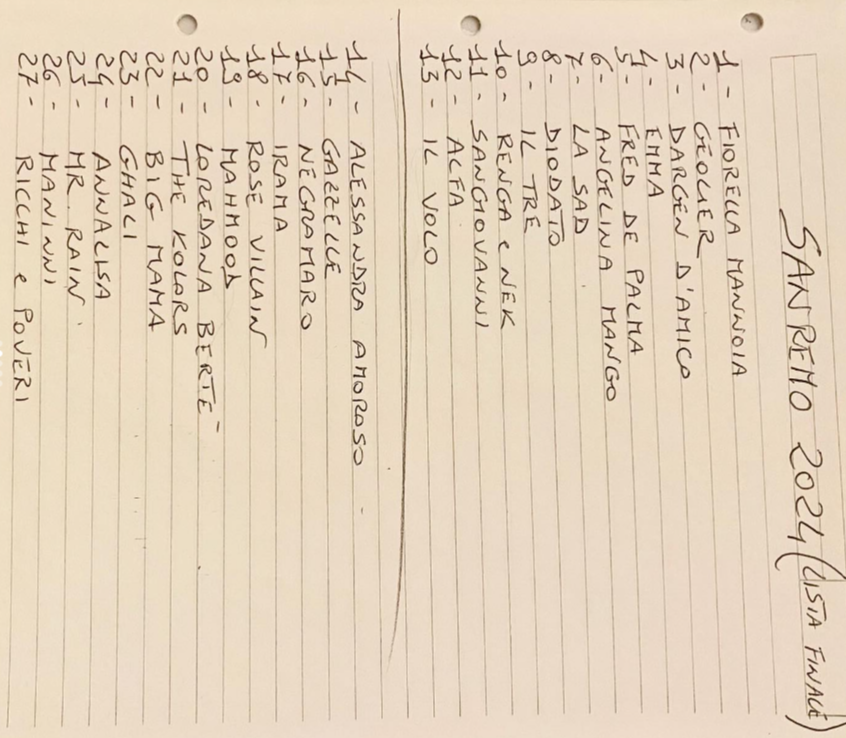 SANREMO 2024 (LISTA FINALE)
1 - FIORELLA MANNOIA
2 - GEOLIER
3 - DARGEN D'AMICO
4 - EMMA
5 - FRED DE PALMA
6 - ANGELINA MANGO
7 - LA SAD
8 - DIODATO
9 - IL TRE
10 - RENGA e NEK
11 - SANGIOVANNI
12 - ALFA
13 - IL VOLO
14 - ALESSANDRA AMOROSO
15 - GAZZELLE
16 - NEGRAMARO
17 - IRAMA
18 - ROSE VILLAIN
19 - MAHMOOD
20 - LOREDANA BERTÈ
21 - THE KOLORS
22 - BIG MAMA
23 - GHALI
24 - ANNALISA
25 - MR. RAIN
26 - MANINNI
27 - RICCHI e POVERI